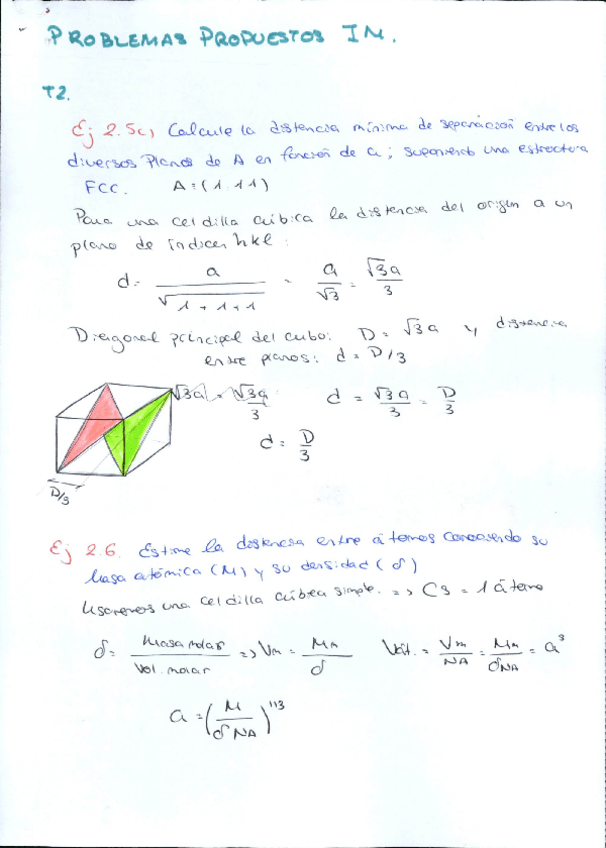 PROBLEMAS PROPUESTOS IM.
T2.
Ej 2.5c) Calcule la distancia mínima de separación entre los
diversos Planos de A en función de a; suponiendo una estructura
FCC. A=(1 1 1)
Para una celdilla cúbica la distancia del origin a un
plano de índices hkl:
d= a / √1+1+1 = a/√3 = √3a/3
Diagonal principal del cubo: D= √3a y distancia
entre planos: d= D/3
√3a = √3a/3 d = √3a/3 = D/3
d= D/3
D/3
Ej 2.6. Estime la distancia entre átomos conociendo su
Masa atómica (M) y su densidad (δ)
Usaremos una celdilla cúbica simple. => CS = 1 átomo
δ= Masa molar / Vol. molar => Vm = Mm/δ Vát. = Vm/NA = Mm/δNA = a³
a = (M/δNA)^1/3